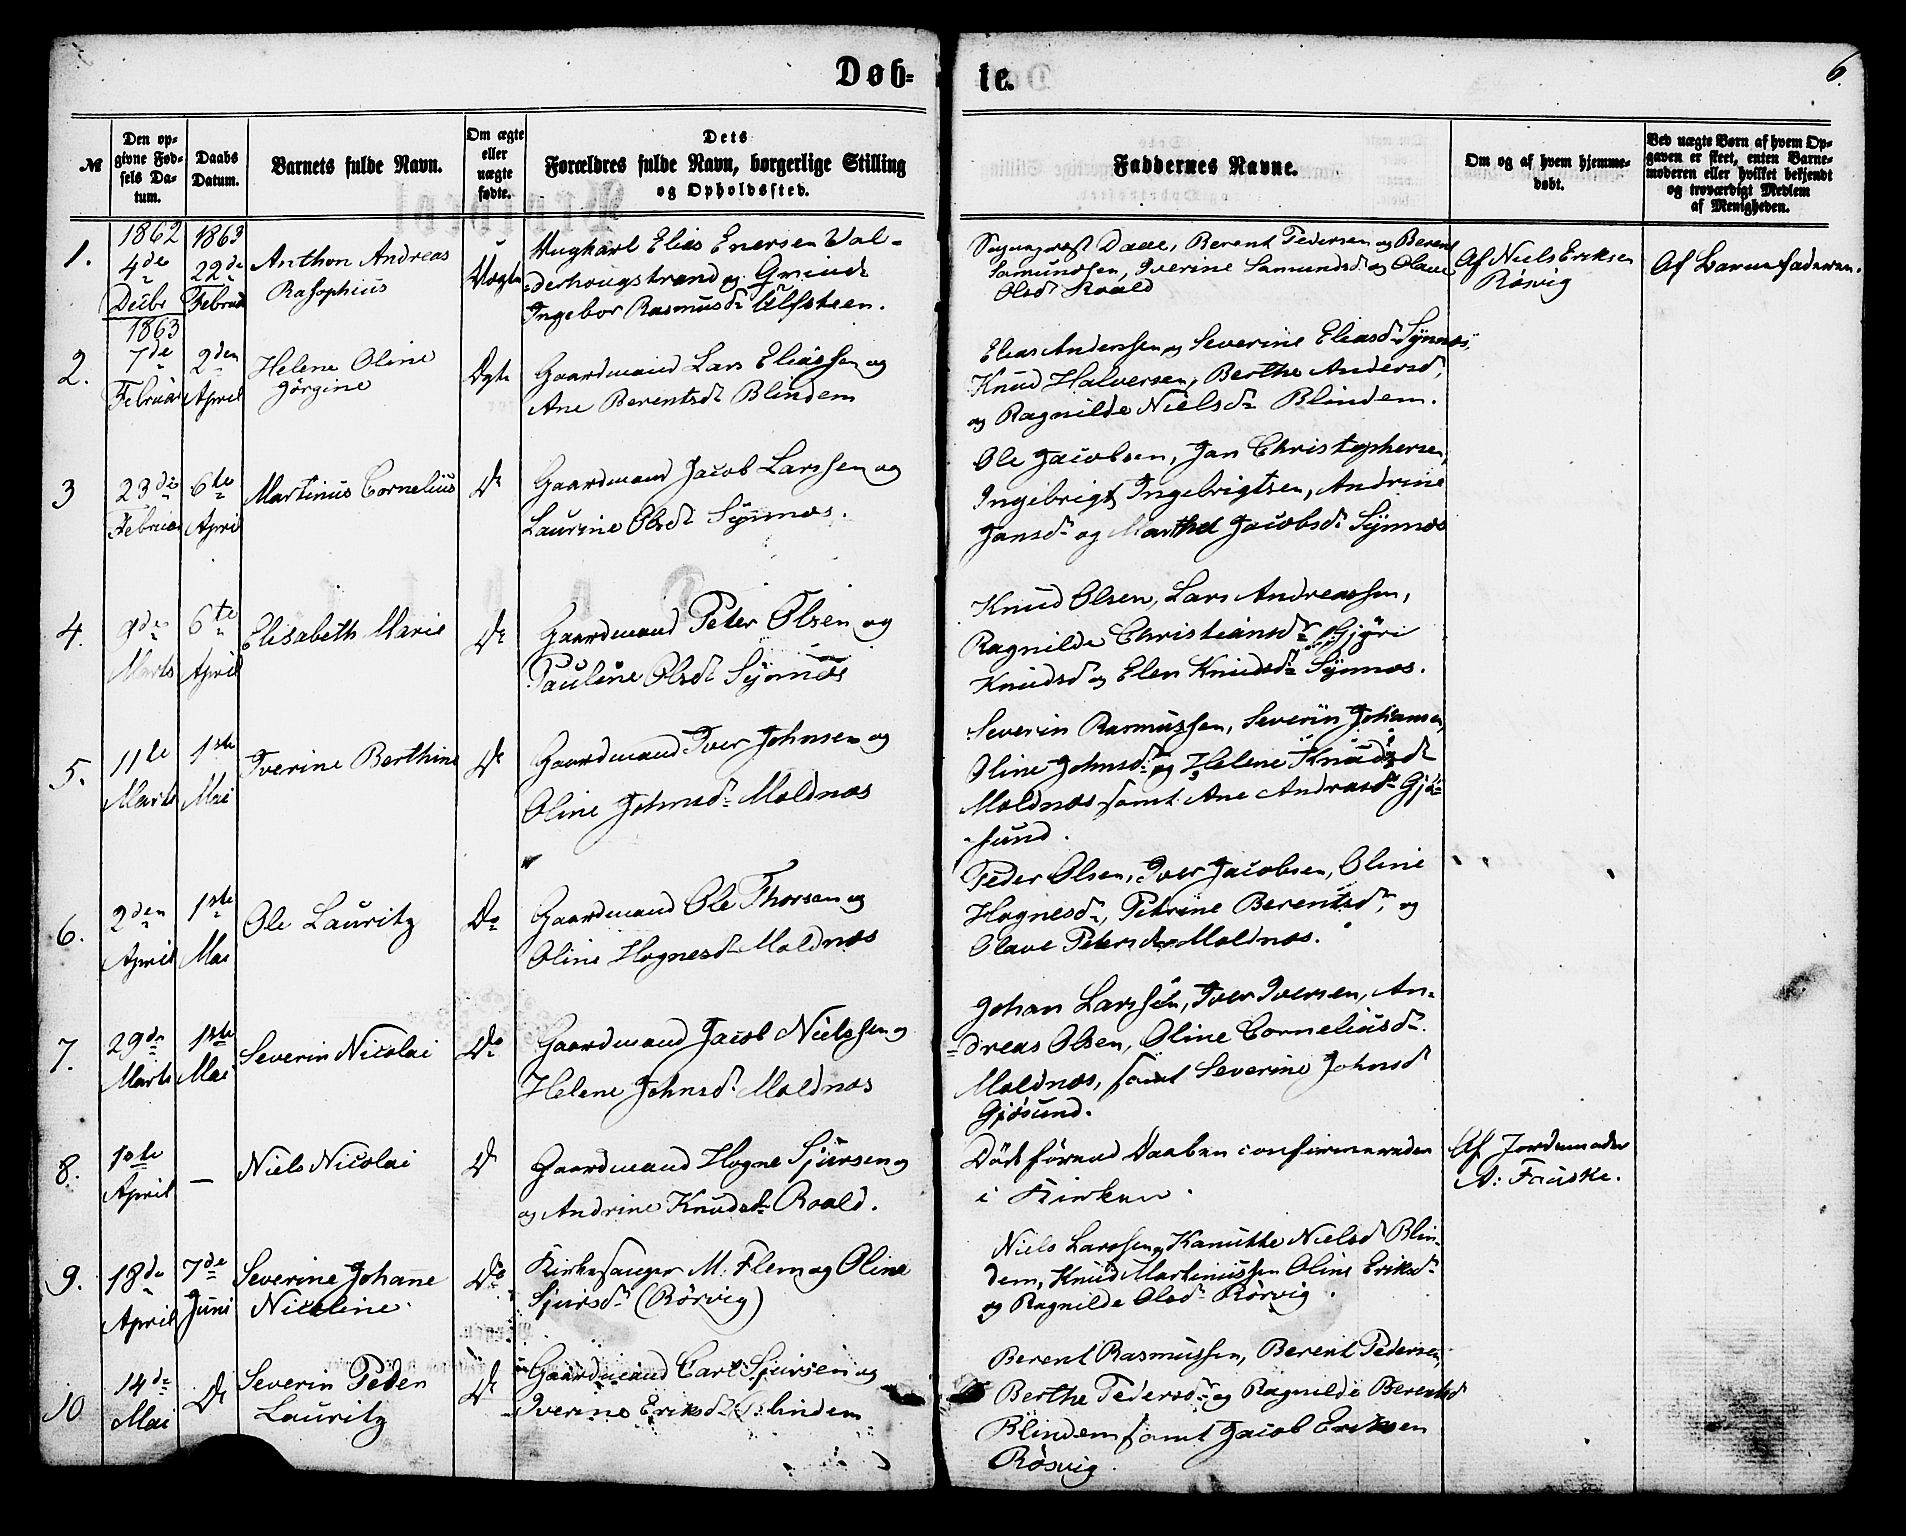 Døb-
te.
6.
№
Den op-
givne Fød-
sels Da-
tum.
Daabs
Datum.
Barnets fulde Navn.
Om ægte
eller
uægte
fødte.
Dets
Forældres fulde Navn, borgerlige Stilling
og Opholdssted.
Faddernes Navne.
Om og af hvem hjemme-
døbt.
Ved uægte Børn af hvem Op-
gaven er skeet, enten Barne-
moderen eller hvilket bekjendt
og troværdigt Medlem
af Menigheden.
1.
1862
4de
Decbr
1863
22de
Februar
Anthon Andreas
Uægte
Ungkarl Elias Enersen Val-
derhougstrand og
Ingebor Rasmusdr Ulfsteen.
Daae, Berent Pedersen og Berent
Samundsen, Iverine Samundsd og Olave
Olsdr Roald
Af Niels Eriksen
Rösvig
Af Barnefaderen.
2.
1863
7de
Februar
2den
April
Helene Oline
Jörgine
Ægte
Gaardmand Lars Eliassen og
Ane Berentsdr Blindem
Elias Anderssen og Severine Eliasdr Synnæs,
Knud Halversen, Berthe Andersd,
og Ragnilde Nielsdr Blindem.
3
23de
Februar
6te
April
Martinus Cornelius
Do
Gaardmand Jacob Larssen og
Laurine Olsdr Synnæs.
Ole Jacobsen, Jan Christophersen,
Ingebrigt Ingebrigtsen, Andrine
Jansdr og Marthe Jacobsdr Synnæs
4.
9de
Marts
6te
April
Elisabeth Marie
Do
Gaardmand Peter Olsen og
Pauline Olsdr Synnæs
Knud Olsen, Lars Andreassen,
Ragnilde Christiansdr Gjöri
Knudsd og Elen Knudsdr Synnæs.
5.
11te
Marts
1ste
Mai
Iverine Berthine
Do
Gaardmand Iver Johnsen og
Oline Johnsdr Moldnæs
Severin Rasmussen, Severin Johansen,
Oline Johnsdr og Helene Knudsdr
Moldnæs samt Ane Andreasdr Gjö-
-sund.
6.
2den
April
1ste
Mai
Ole Lauritz
Do
Gaardmand Ole Thorsen og
Oline Hognesdr Moldnæs
Peder Olsen, Iver Jacobsen, Oline
Hognesdr, Petrine Berentsdr, og
Olave Petersdr Moldnæs.
7.
29de
Marts
1ste
Mai
Severin Nicolai
Do
Gaardmand Jacob Nielssen og
Helene Johnsdr Moldnæs
Johan Larssen, Iver Iversen, An-
-dreas Olsen, Oline Corneliusdr
Moldnæs, samt Severine Johnsd
Gjösund.
8.
10te
April
—
Niels Nicolai
Do
Gaardmand Hogne Sjursen og
og Andrine Knudsdr Roald.
Död förend Daaben confirmereden
i Kirken.
Af Jordemoder
A: Fauske.
9.
18de
April
7de
Juni
Severine Johane
Nicoline
Do
Kirkesanger M: Flem og Oline
Sjursdr (Rörvig)
Niels Larssen og Kanutte Nielsd Blin-
dem, Knud Martinussen Oline Eriksdr
og Ragnilde Olsdr Rörvig.
10
14de
Mai
Do
Severin Peder
Lauritz
Do
Gaardmand Carl Sjursen og
Iverine Eriksdr Blindem
Berent Rasmussen, Berent Pedersen,
Berthe Pedersdr og Ragnilde Berentsd
Blindem samt Jacob Eriksen
Rösvig.